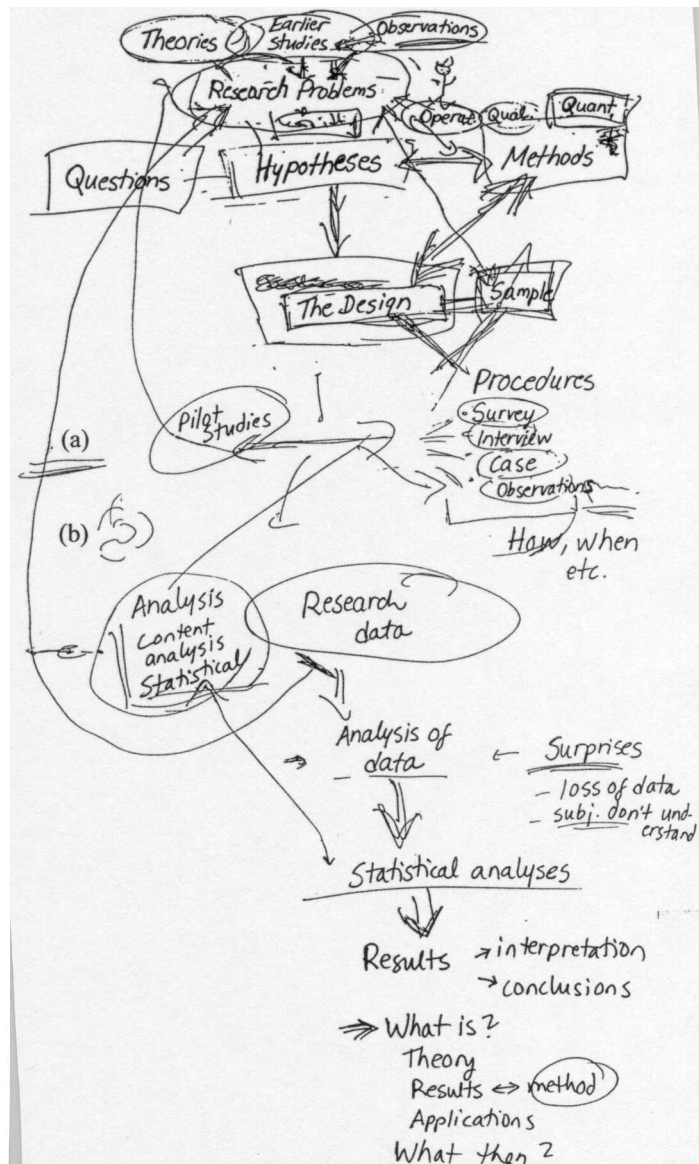 Theories
Earlier
studies
Observations
Research Problems
Operat.
Qual.
Quant.
Questions
Hypotheses
Methods
The Design
Sample
Pilot
Studies
Procedures
Survey
Interview
Case
Observations
How, when
etc.
(a)
(b)
Analysis
Content
analysis
Statistical
Research
data
Analysis of
data
Surprises
- loss of data
- subj. don't und-
erstand
Statistical analyses
Results → interpretation
→ conclusions
⇒ What is?
Theory
Results ↔ method
Applications
What then?